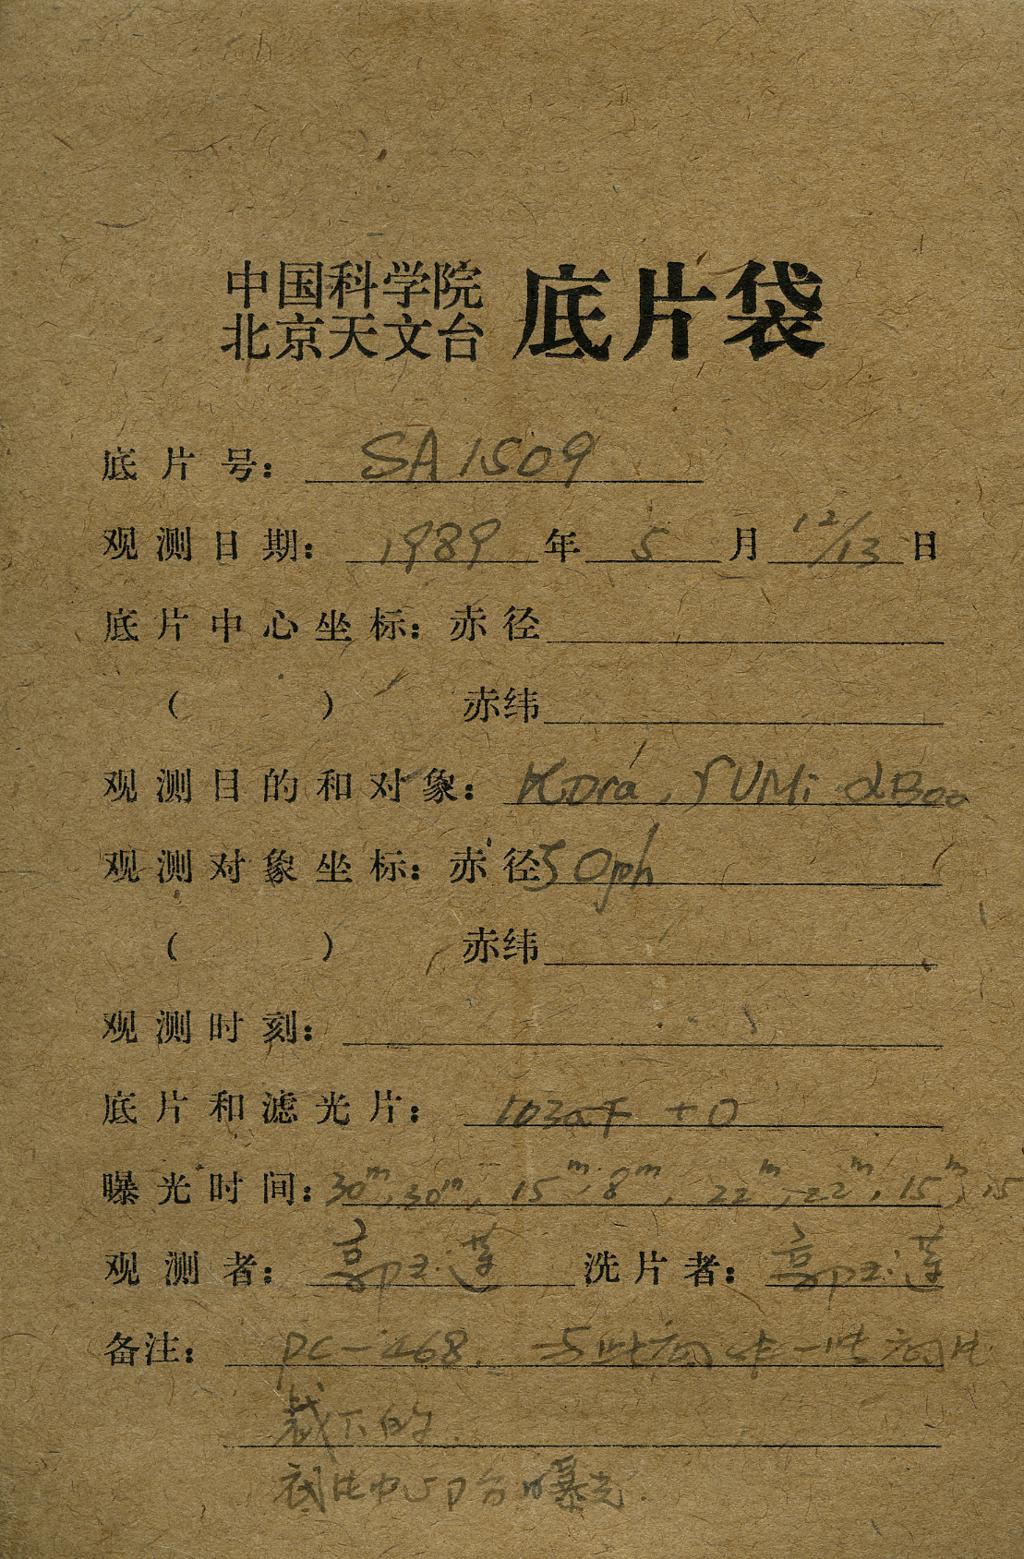 中国科学院
北京天文台 底片袋
底片号: SA1509
观测日期: 1989年 5月 12/13日
底片中心坐标: 赤径
( ) 赤纬
观测目的和对象: κDra, γUMi αBoo
观测对象坐标: 赤径 ζOph
( ) 赤纬
观测时刻:
底片和滤光片: 103aF + O
曝光时间: 30m, 30m, 15m, 8m, 22m, 22m, 15m, 15
观测者: 郭玉莲 洗片者: 郭玉莲
备注: PC-468.
裁下的.
底片中 曝光.